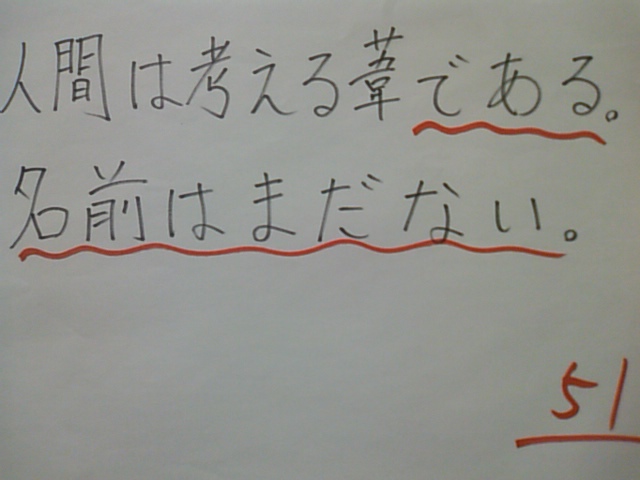 人間は考える葦である。
名前はまだない。
51